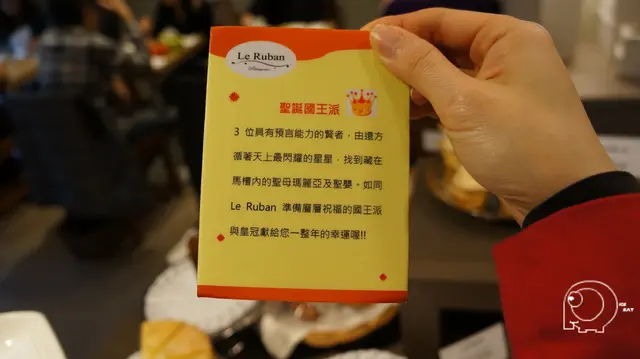 Le Ruban
Pâtisserie
聖誕國王派
3 位具有預言能力的賢者，由遠方
循著天上最閃耀的星星，找到藏在
馬槽內的聖母瑪麗亞及聖嬰。如同
Le Ruban 準備層層祝福的國王派
與皇冠獻給您一整年的幸運喔!!